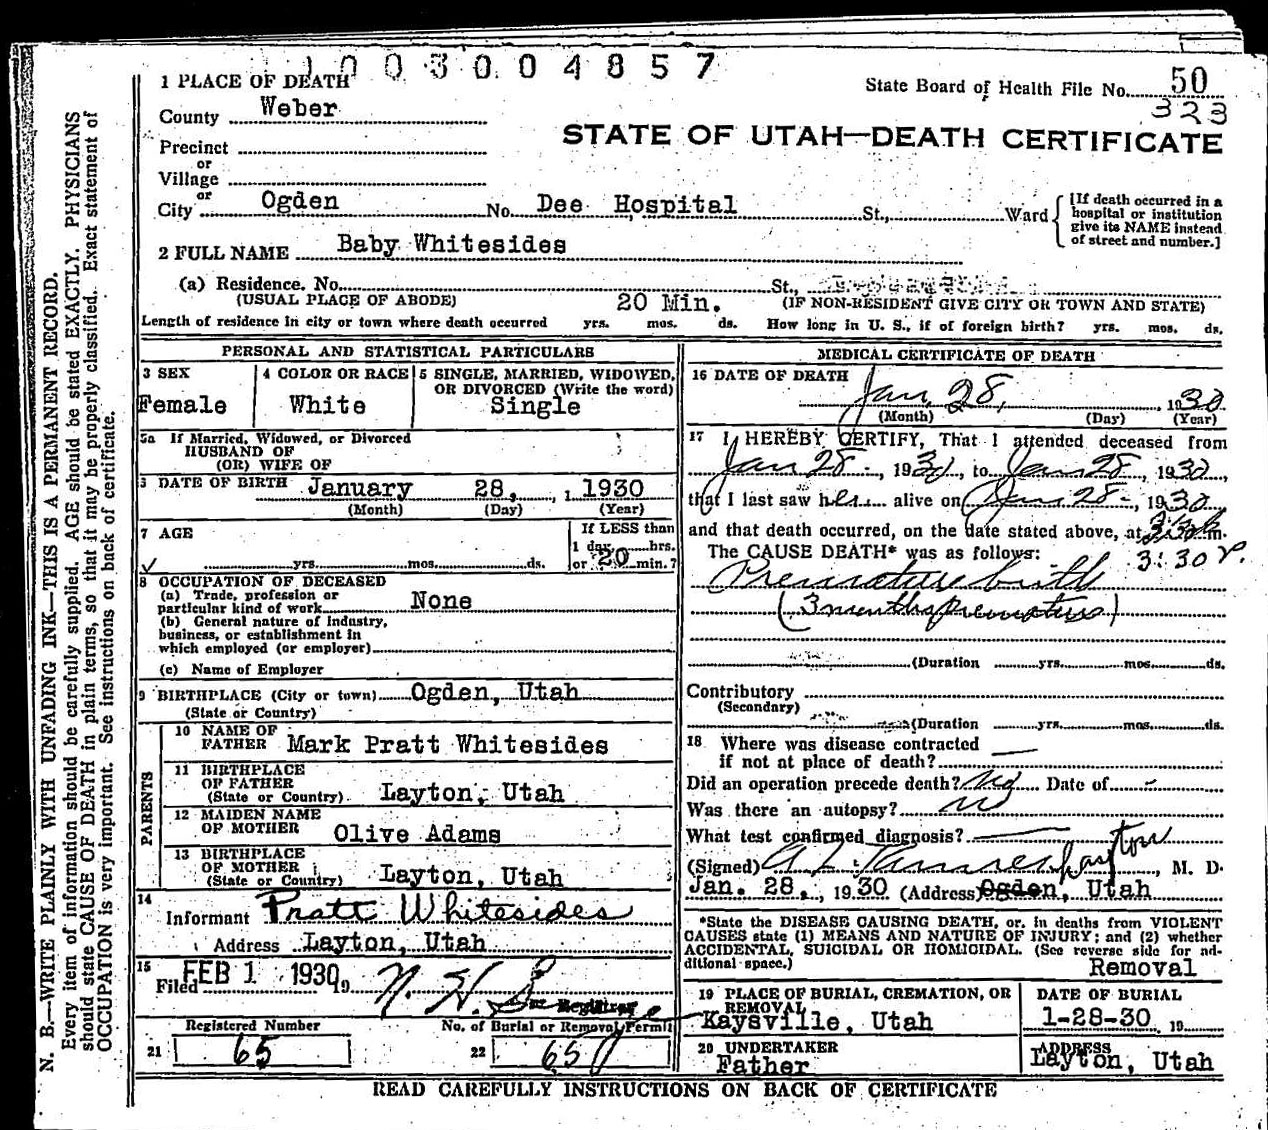 1003004857
1 PLACE OF DEATH
State Board of Health File No. 50
323
County Weber
STATE OF UTAH—DEATH CERTIFICATE
Precinct
or
Village
or
City Ogden No. Dee Hospital St., Ward
[If death occurred in a
hospital or institution
give its NAME instead
of street and number.]
2 FULL NAME Baby Whitesides
(a) Residence. No. St.,
(USUAL PLACE OF ABODE) 20 Min. (IF NON-RESIDENT GIVE CITY OR TOWN AND STATE)
Length of residence in city or town where death occurred yrs. mos. ds. How long in U. S., if of foreign birth? yrs. mos. ds.
PERSONAL AND STATISTICAL PARTICULARS
3 SEX
Female
4 COLOR OR RACE
White
5 SINGLE, MARRIED, WIDOWED,
OR DIVORCED (Write the word)
Single
5a If Married, Widowed, or Divorced
HUSBAND OF
(OR) WIFE OF
DATE OF BIRTH January 28, 1930
(Month) (Day) (Year)
7 AGE
If LESS than
1 day hrs.
yrs. mos. ds. or 20 min.?
8 OCCUPATION OF DECEASED
(a) Trade, profession or
particular kind of work None
(b) General nature of industry,
business, or establishment in
which employed (or employer)
(c) Name of Employer
9 BIRTHPLACE (City or town) Ogden, Utah
(State or Country)
PARENTS
10 NAME OF
FATHER Mark Pratt Whitesides
11 BIRTHPLACE
OF FATHER
(State or Country) Layton, Utah
12 MAIDEN NAME
OF MOTHER Olive Adams
13 BIRTHPLACE
OF MOTHER
(State or Country) Layton, Utah
14
Informant Pratt Whitesides
Address Layton, Utah
15
Filed FEB 1 1930 19
Registrar
Registered Number No. of Burial or Removal Permit
21 65 22 65
MEDICAL CERTIFICATE OF DEATH
16 DATE OF DEATH
Jan. 28, 1930
(Month) (Day) (Year)
17 I HEREBY CERTIFY, That I attended deceased from
Jan 28-, 1930, to Jan 28, 1930,
that I last saw her alive on Jan 28-, 1930
and that death occurred, on the date stated above, at m.
The CAUSE DEATH* was as follows: 3:30 P.
Premature birth
(3 months premature)
(Duration yrs. mos. ds.
Contributory
(Secondary)
(Duration yrs. mos. ds.
18 Where was disease contracted
if not at place of death?
Did an operation precede death? No Date of -
Was there an autopsy? no
What test confirmed diagnosis?
(Signed) Layton, M. D.
Jan. 28, 1930 (Address) Ogden, Utah
*State the DISEASE CAUSING DEATH, or, in deaths from VIOLENT
CAUSES state (1) MEANS AND NATURE OF INJURY; and (2) whether
ACCIDENTAL, SUICIDAL OR HOMICIDAL. (See reverse side for ad-
ditional space.)
Removal
19 PLACE OF BURIAL, CREMATION, OR
REMOVAL
Kaysville, Utah
DATE OF BURIAL
1-28-30 19
20 UNDERTAKER
Father
ADDRESS
Layton, Utah
READ CAREFULLY INSTRUCTIONS ON BACK OF CERTIFICATE
N. B.—WRITE PLAINLY WITH UNFADING INK—THIS IS A PERMANENT RECORD.
Every item of information should be carefully supplied. AGE should be stated EXACTLY. PHYSICIANS
should state CAUSE OF DEATH in plain terms, so that it may be properly classified. Exact statement of
OCCUPATION is very important. See instructions on back of certificate.